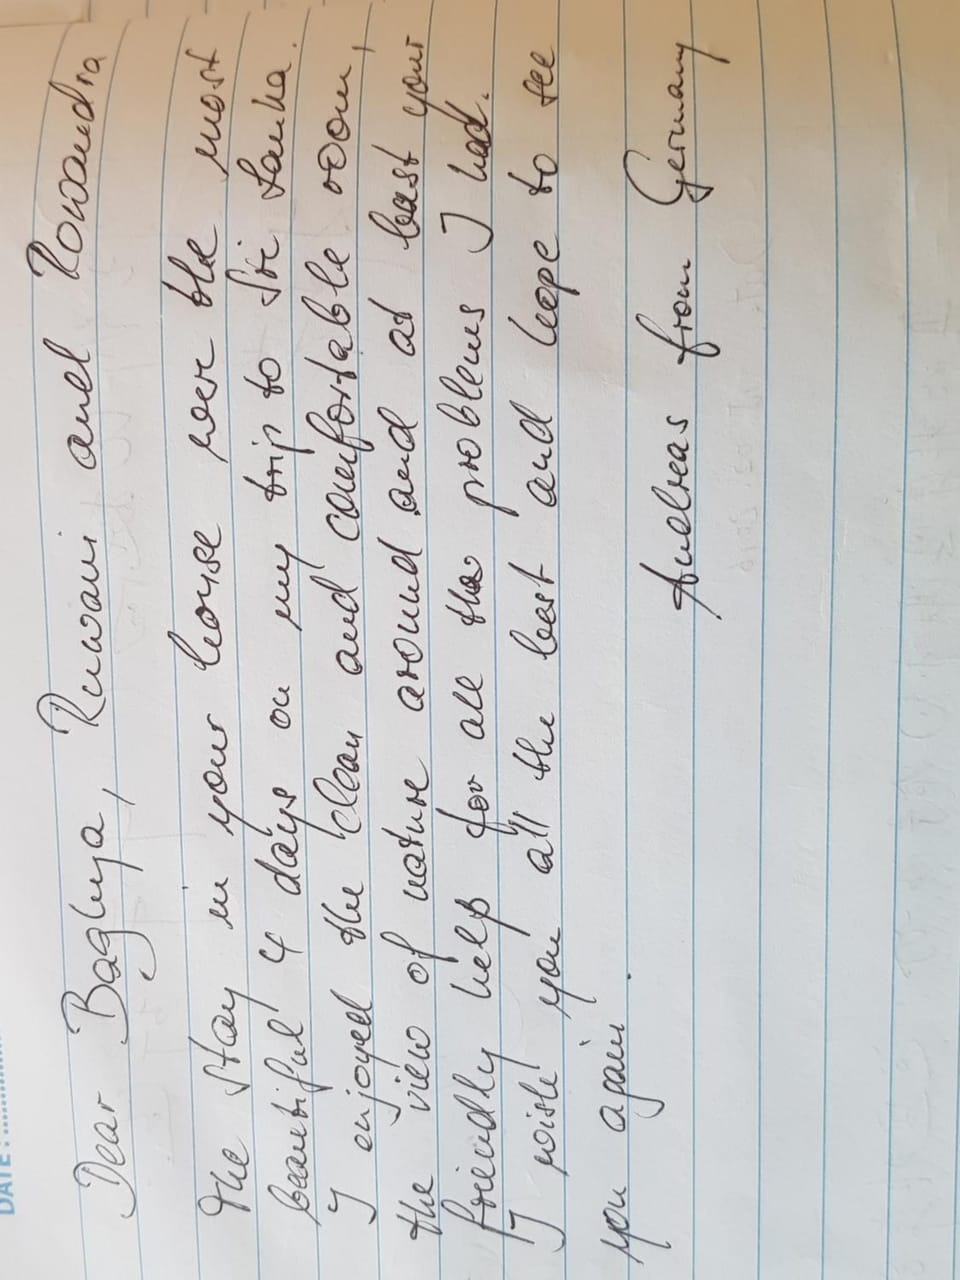 DATE :
Dear Baghya, Ruwani and Romandra
The stay in your house wer the most
beautiful 4 days on my trip to Sri Lanka.
I enjoyed the clean and comfortable room,
the view of nature around and at least your
friendly help for all the problems I had.
I wish you all the best and hope to see
you again.
Andreas from Germany